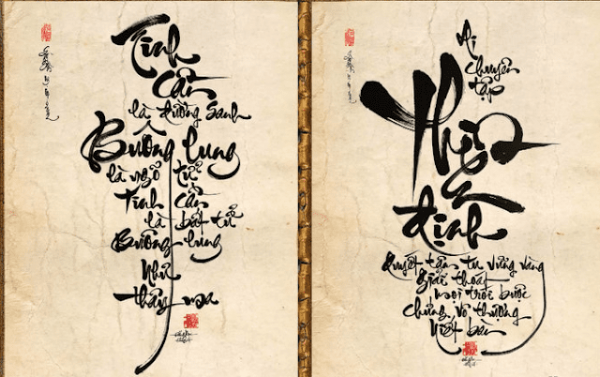 Tinh
Cần
là đường Sanh
Buông lung
là ngõ tử
Tinh Cần
là bất tử
Buông lung
Như
thây ma
Ai
chuyên
tập
Thiền
định
Quyết tâm tu vững vàng
giải thoát
mọi trói buộc
chứng vô thượng
Niết bàn